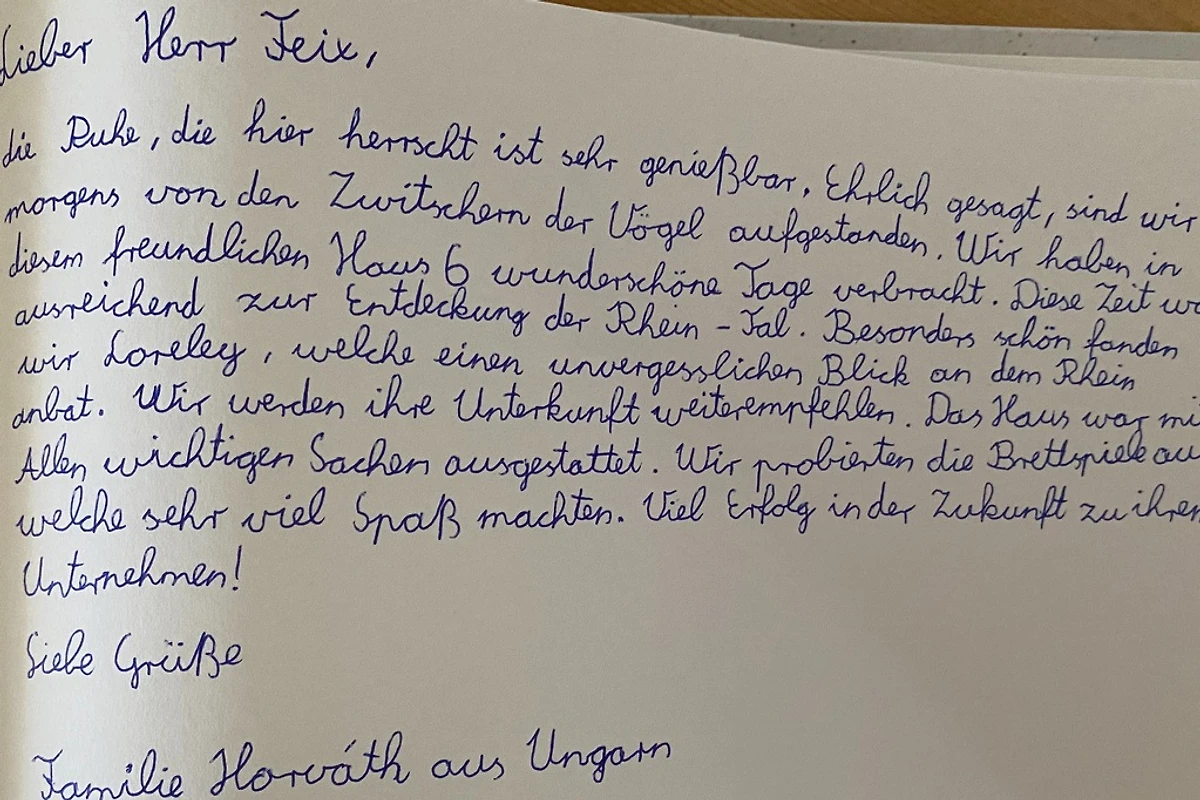 Lieber Herr Feix,
die Ruhe, die hier herrscht ist sehr genießbar. Ehrlich gesagt, sind wir
morgens von den Zwitschern der Vögel aufgestanden. Wir haben in
diesem freundlichen Haus 6 wunderschöne Tage verbracht. Diese Zeit wa
ausreichend zur Entdeckung der Rhein - Tal. Besonders schön fanden
wir Loreley, welche einen unvergesslichen Blick an dem Rhein
anbat. Wir werden ihre Unterkunft weiterempfehlen. Das Haus war mi
Allen wichtigen Sachen ausgestattet. Wir probierten die Brettspiele au
welche sehr viel Spaß machten. Viel Erfolg in der Zukunft zu ihren
Unternehmen!
Liebe Grüße
Familie Horváth aus Ungarn